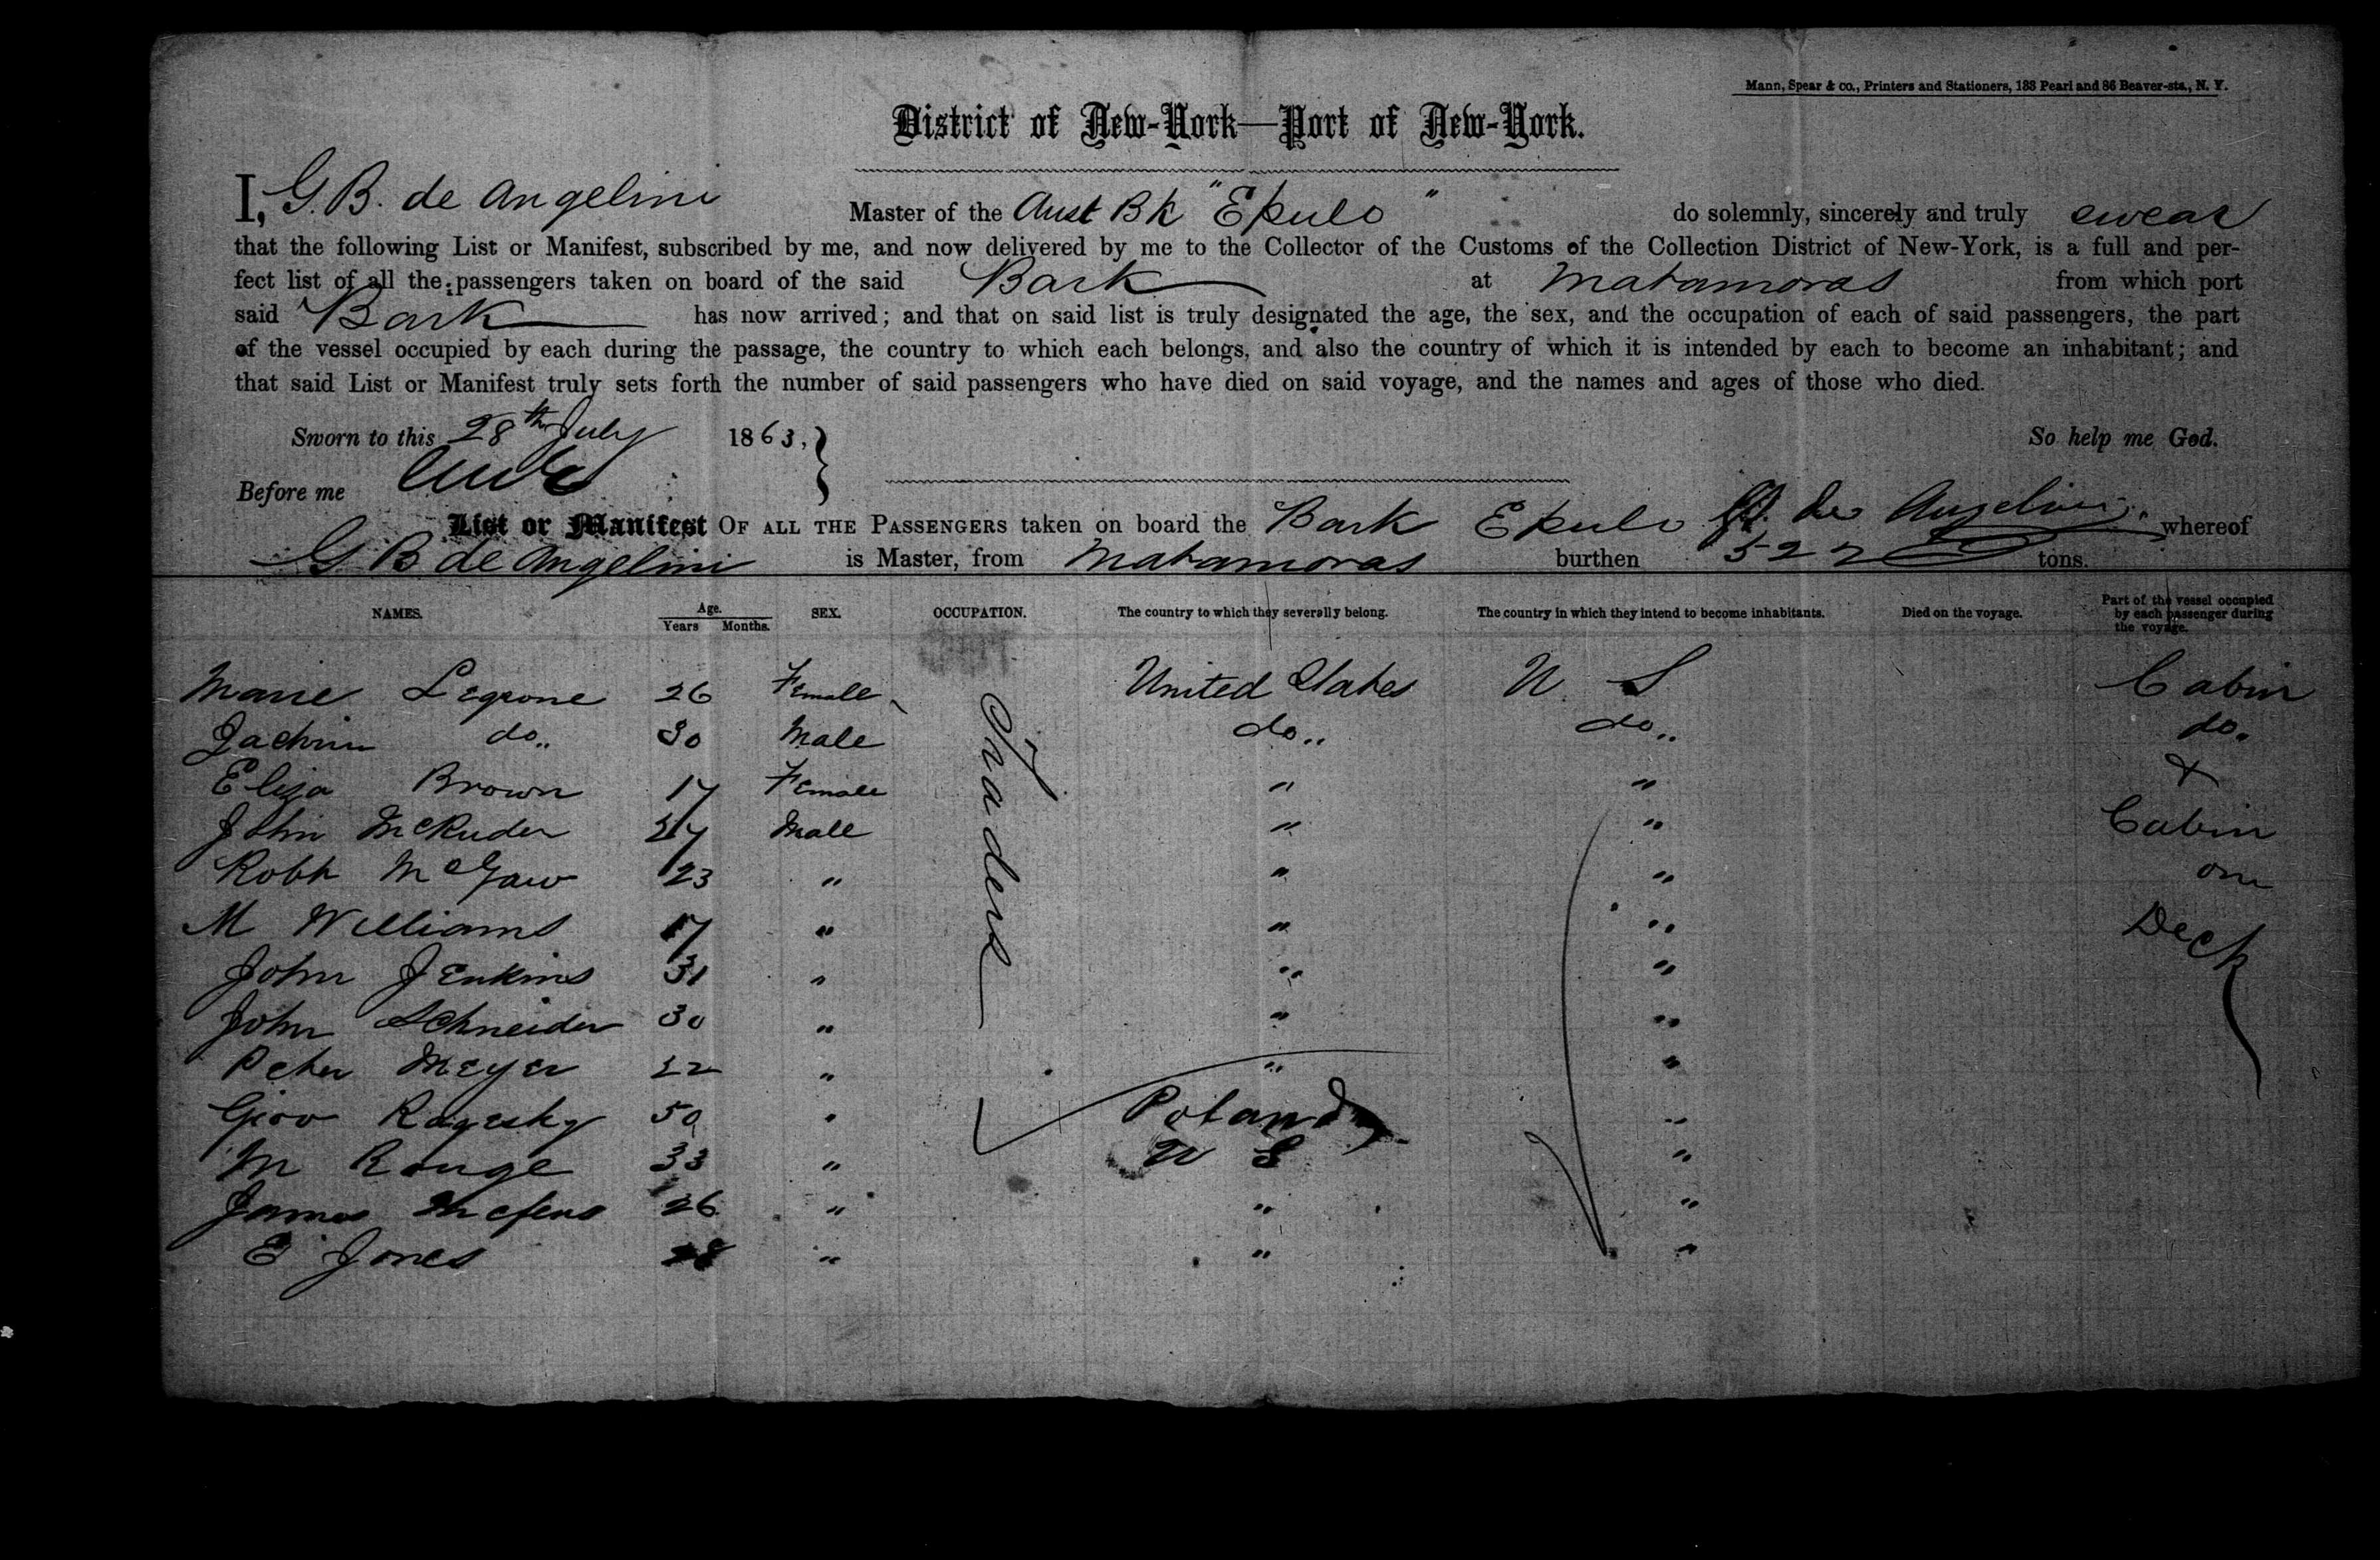 Mann, Spear & co., Printers and Stationers, 133 Pearl and 86 Beaver-sts., N. Y.
District of New-York—Port of New-York.
I, G. B. de Angelini Master of the Aust Bk "Epulo" do solemnly, sincerely and truly swear
that the following List or Manifest, subscribed by me, and now delivered by me to the Collector of the Customs of the Collection District of New-York, is a full and per-
fect list of all the passengers taken on board of the said Bark at Matamoras from which port
said Bark has now arrived; and that on said list is truly designated the age, the sex, and the occupation of each of said passengers, the part
of the vessel occupied by each during the passage, the country to which each belongs, and also the country of which it is intended by each to become an inhabitant; and
that said List or Manifest truly sets forth the number of said passengers who have died on said voyage, and the names and ages of those who died.
Sworn to this 28th July 1863, So help me God.
Before me
List or Manifest OF ALL THE PASSENGERS taken on board the Bark Epulo de Angelini whereof
G B de Angelini is Master, from Matamoras burthen 522 tons.
NAMES. Age. Years Months. SEX. OCCUPATION. The country to which they severally belong. The country in which they intend to become inhabitants. Died on the voyage. Part of the vessel occupied by each passenger during the voyage.
Marie Legrone 26 Female United States U S Cabin
Jachim do,, 30 Male do,, do,, do,,
Eliza Brown 17 Female " " &
John McRuder Male " " Cabin
Robt McGaw 23 " " " on
M Williams 17 " " " Deck
John Jenkins 31 " " "
John Schneider 30 " " "
Peter Meyer 22 " " "
Giov Rogesky 50 " Poland "
M Rouge 33 " U S "
James 26 " " "
E Jones " " "
Traders